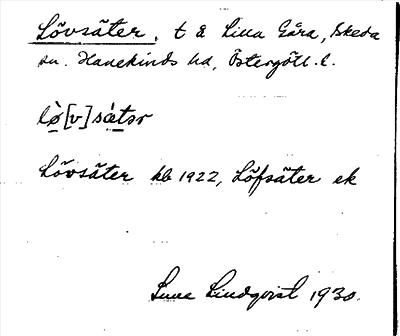 Lövsäter, t å Lilla Gåra, Skeda
sn. Hanekinds hd, Östergötl. l.
lø̀[v]sǽtər
Lövsäter kb 1922, Löfsäter ek
Sune Lindqvist 1930.